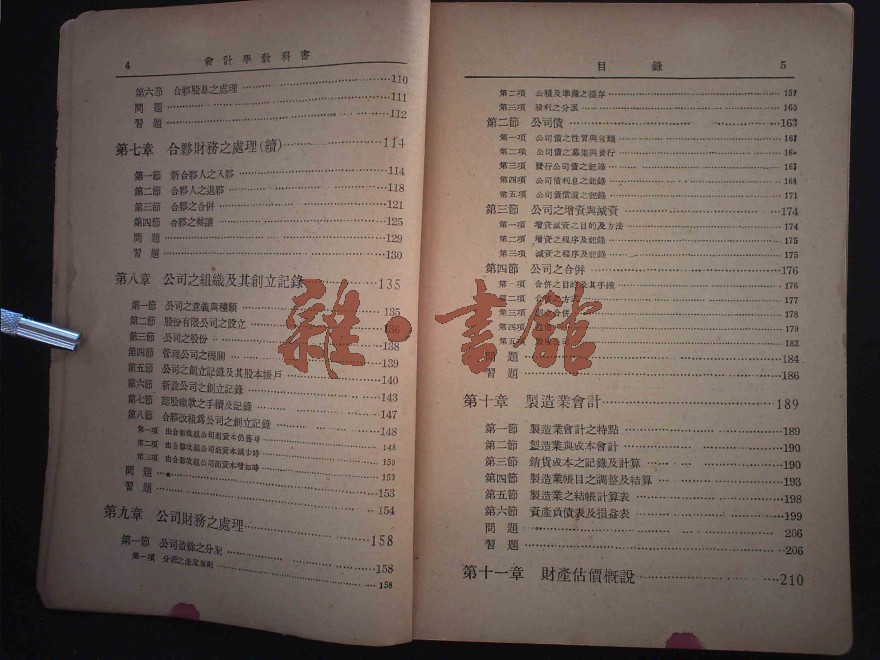 4 會計學敎科書
第六節 合夥股息之處理 110
問題 111
習題 112
第七章 合夥財務之處理(續) 114
第一節 新合夥人之入夥 114
第二節 合夥人之退夥 118
第三節 合夥之合併 121
第四節 合夥之轉讓 125
問題 129
習題 130
第八章 公司之組織及其創立記錄 135
第一節 公司之意義與種類 135
第二節 股份有限公司之設立 136
第三節 公司之股份 138
第四節 管理公司之機關 139
第五節 公司之創立記錄及其股本帳戶 140
第六節 新設公司之創立記錄 143
第七節 認股繳款之手續及記錄 147
第八節 合夥改組爲公司之創立記錄 148
第一項 由合夥改組公司而資本仍舊時 148
第二項 由合夥改組公司而資本減少時 150
第三項 由合夥改組公司而資本增加時
問題 153
習題 154
第九章 公司財務之處理 158
第一節 公司盈餘之分配 158
第一項 分配之法定原則 158
目錄 5
第二項 公積及準備之提存 157
第三項 股利之分派 160
第二節 公司債 163
第一項 公司債之性質與種類
第二項 公司債之募集與發行
第三項 發行公司債之記錄
第四項 公司債利息之記錄 168
第五項 公司債償還之記錄 171
第三節 公司之增資與減資 174
第一項 增資減資之目的及方法 174
第二項 增資之程序及記錄 175
第三項 減資之程序及記錄 175
第四節 公司之合併 176
第一項 合併之目的及其手續 176
第二項 合併之方式 177
第三項 合併 178
第四項 179
第五項 182
問題 184
習題 186
第十章 製造業會計 189
第一節 製造業會計之特點 189
第二節 製造業與成本會計 190
第三節 銷貨成本之記錄及計算 190
第四節 製造業帳目之調整及結算 193
第五節 製造業之結帳計算表 198
第六節 資產負債表及損益表 199
問題 206
習題 206
第十一章 財產估價槪說 210
雜·書館